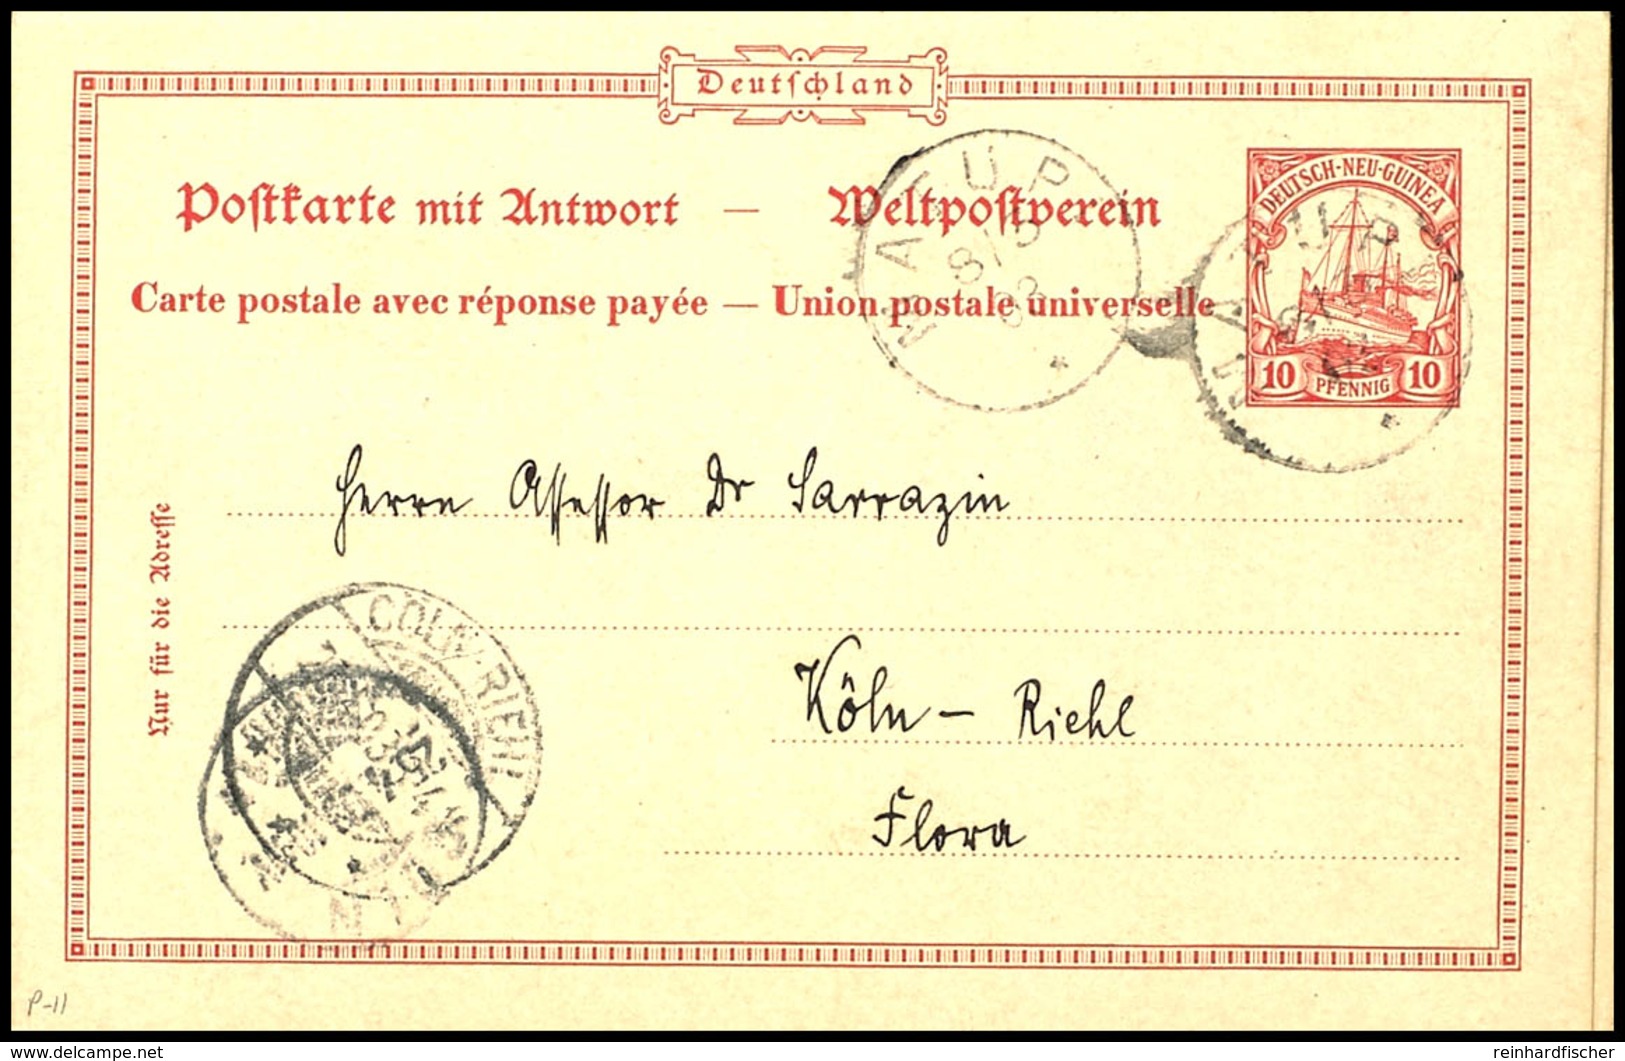 Deutſchland
Poſtkarte mit Antwort — Weltpoſtverein
Carte postale avec réponse payée — Union postale universelle
DEUTSCH-NEU-GUINEA
10 PFENNIG 10
MATUPI
8/5
03
Herrn Assessor Dr Sarrazin
Köln - Riehl
Flora
Nur für die Adreſſe
CÖLN-RIEHL
P-11
www.delcampe.net
reinhardfischer